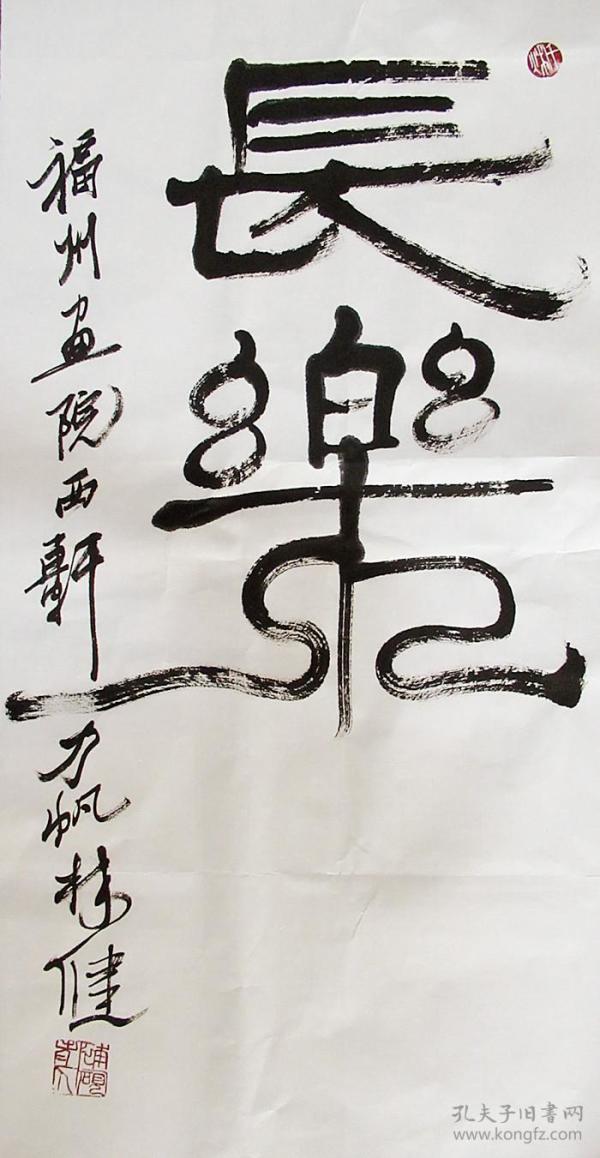 長樂
福州画院西軒
力帆林健
孔夫子旧書网
www.kongfz.com